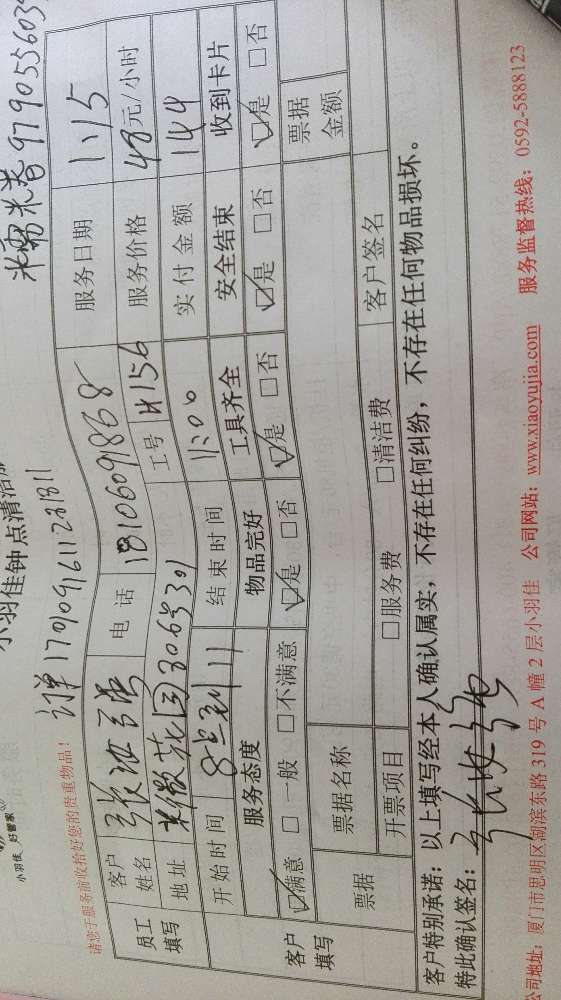 小羽佳 好管家
小羽佳钟点清洁
米雷米卷 979055603
请您于服务前收拾好您的贵重物品!
订单 17010916112231811
员工填写
客户姓名 电话 18106091868 服务日期 1:15
地址 花园306号301 工号 H156 服务价格 48元/小时
开始时间 8点到11 结束时间 11:00 实付金额 144
客户填写
服务态度 物品完好 工具齐全 安全结束 收到卡片
☑满意 □一般 □不满意 ☑是 □否 ☑是 □否 ☑是 □否 ☑是 □否
票据 票据名称 票据金额
开票项目 □服务费 □清洁费 客户签名
客户特别承诺:以上填写经本人确认属实,不存在任何纠纷,不存在任何物品损坏。
特此确认签名:
公司地址:厦门市思明区湖滨东路 319 号 A 幢 2 层小羽佳 公司网站:www.xiaoyujia.com 服务监督热线:0592-5888123